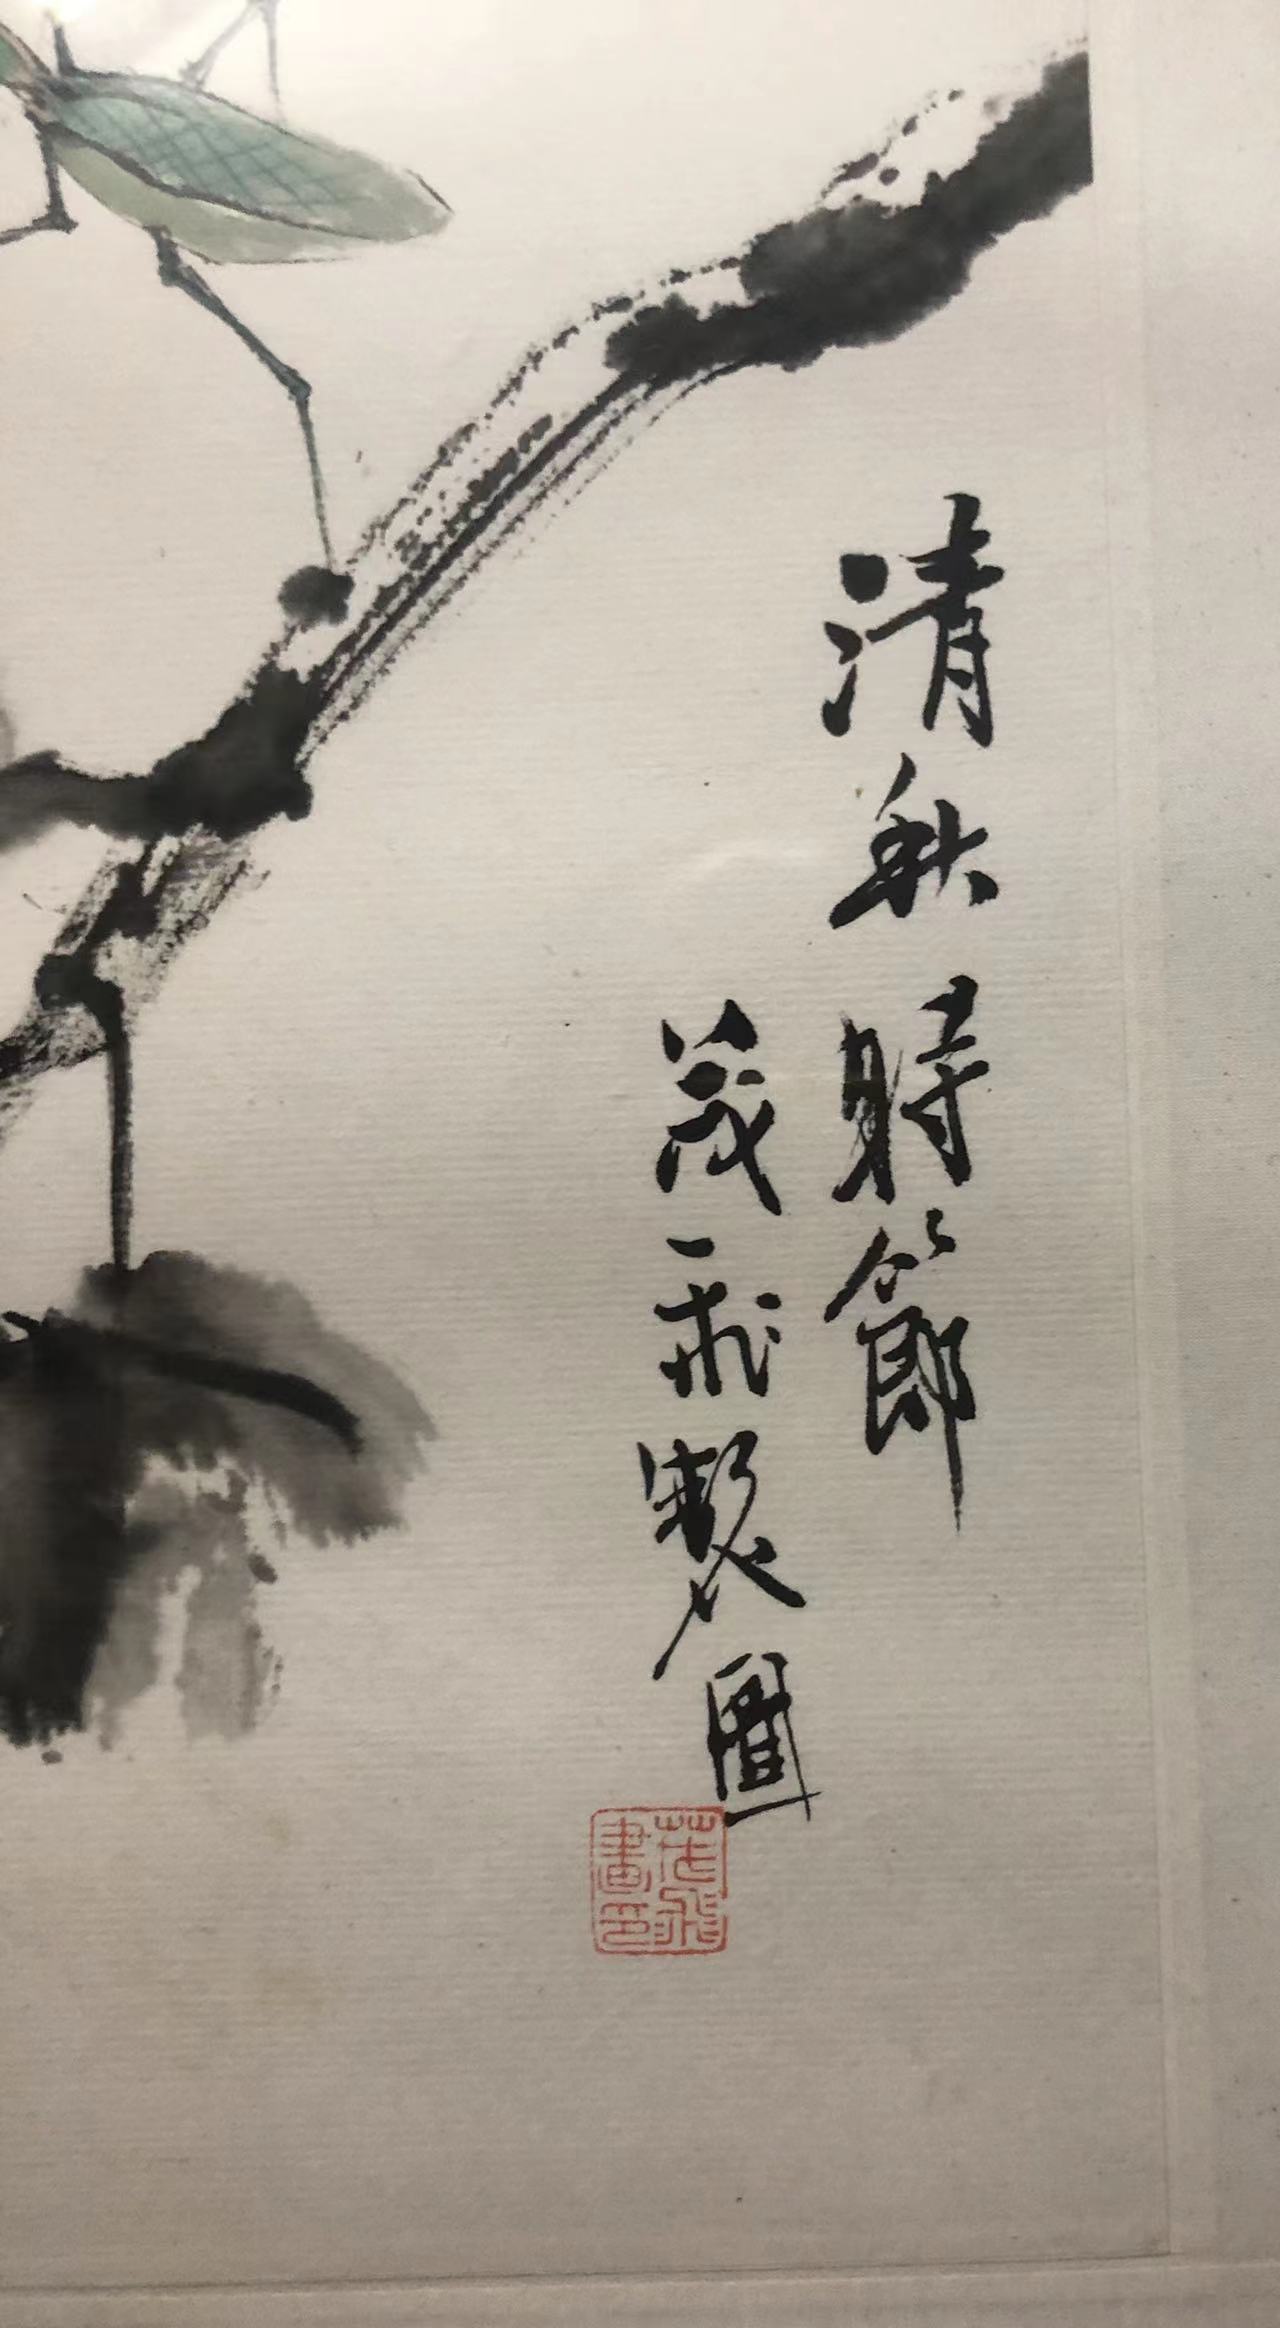 清秋時節
茂飛製圖
茂飛
畫印